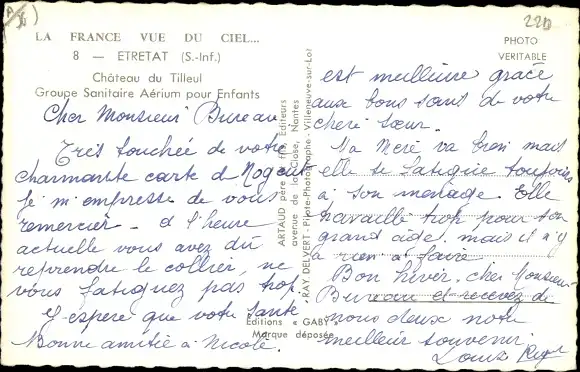 220
LA FRANCE VUE DU CIEL...
8 — ETRETAT (S.-Inf.)
Château du Tilleul
Groupe Sanitaire Aérium pour Enfants
PHOTO
VERITABLE
Cher Monsieur Bureau
Très touchée de votre
charmante carte d Nogent
je m'empresse de vous
remercier - à l'heure
actuelle vous avez dû
reprendre le collier, ne
vous fatiguez pas trop,
J'espère que votre santé
Bonne amitié à Nicole.
ARTAUD père et fils, Editeurs
avenue de la Close, Nantes
RAY DELVERT, Pilote-Photographe - Villeneuve-sur-Lot
Editions « GABY »
Marque déposée
est meilleure grâce
aux bons soins de votre
chère sœur.
Ma Mère va bien mais
elle se fatigue toujours
à son ménage. Elle
travaille trop pour son
grand âge, mais il n'y
a rien à faire
Bon hiver, cher Monsieur
Bureau et recevez de
nous deux notre
meilleur souvenir
Louis